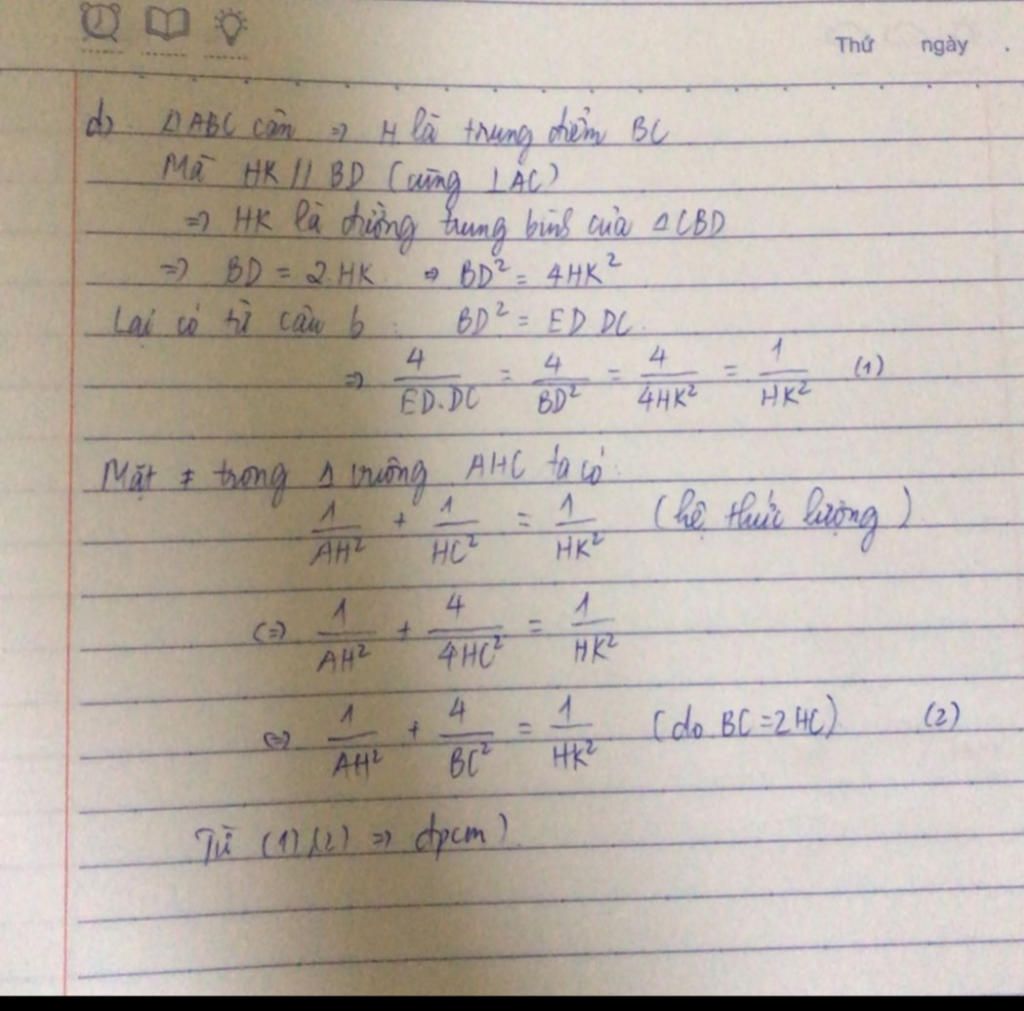 Thứ ngày .
d) ΔABC cân => H là trung điểm BC
Mà HK // BD (cùng ⊥AC)
=> HK là đường trung bình của ΔCBD
=> BD = 2.HK => BD² = 4HK²
Lại có từ câu b : BD² = ED DC.
=> 4/(ED.DC) = 4/BD² = 4/(4HK²) = 1/HK² (1)
Mặt ≠ trong Δ vuông AHC ta có:
1/AH² + 1/HC² = 1/HK² (hệ thức lượng)
(=> 1/AH² + 4/(4HC²) = 1/HK²
<=> 1/AH² + 4/BC² = 1/HK² (do BC = 2HC) (2)
Từ (1),(2) => đpcm)